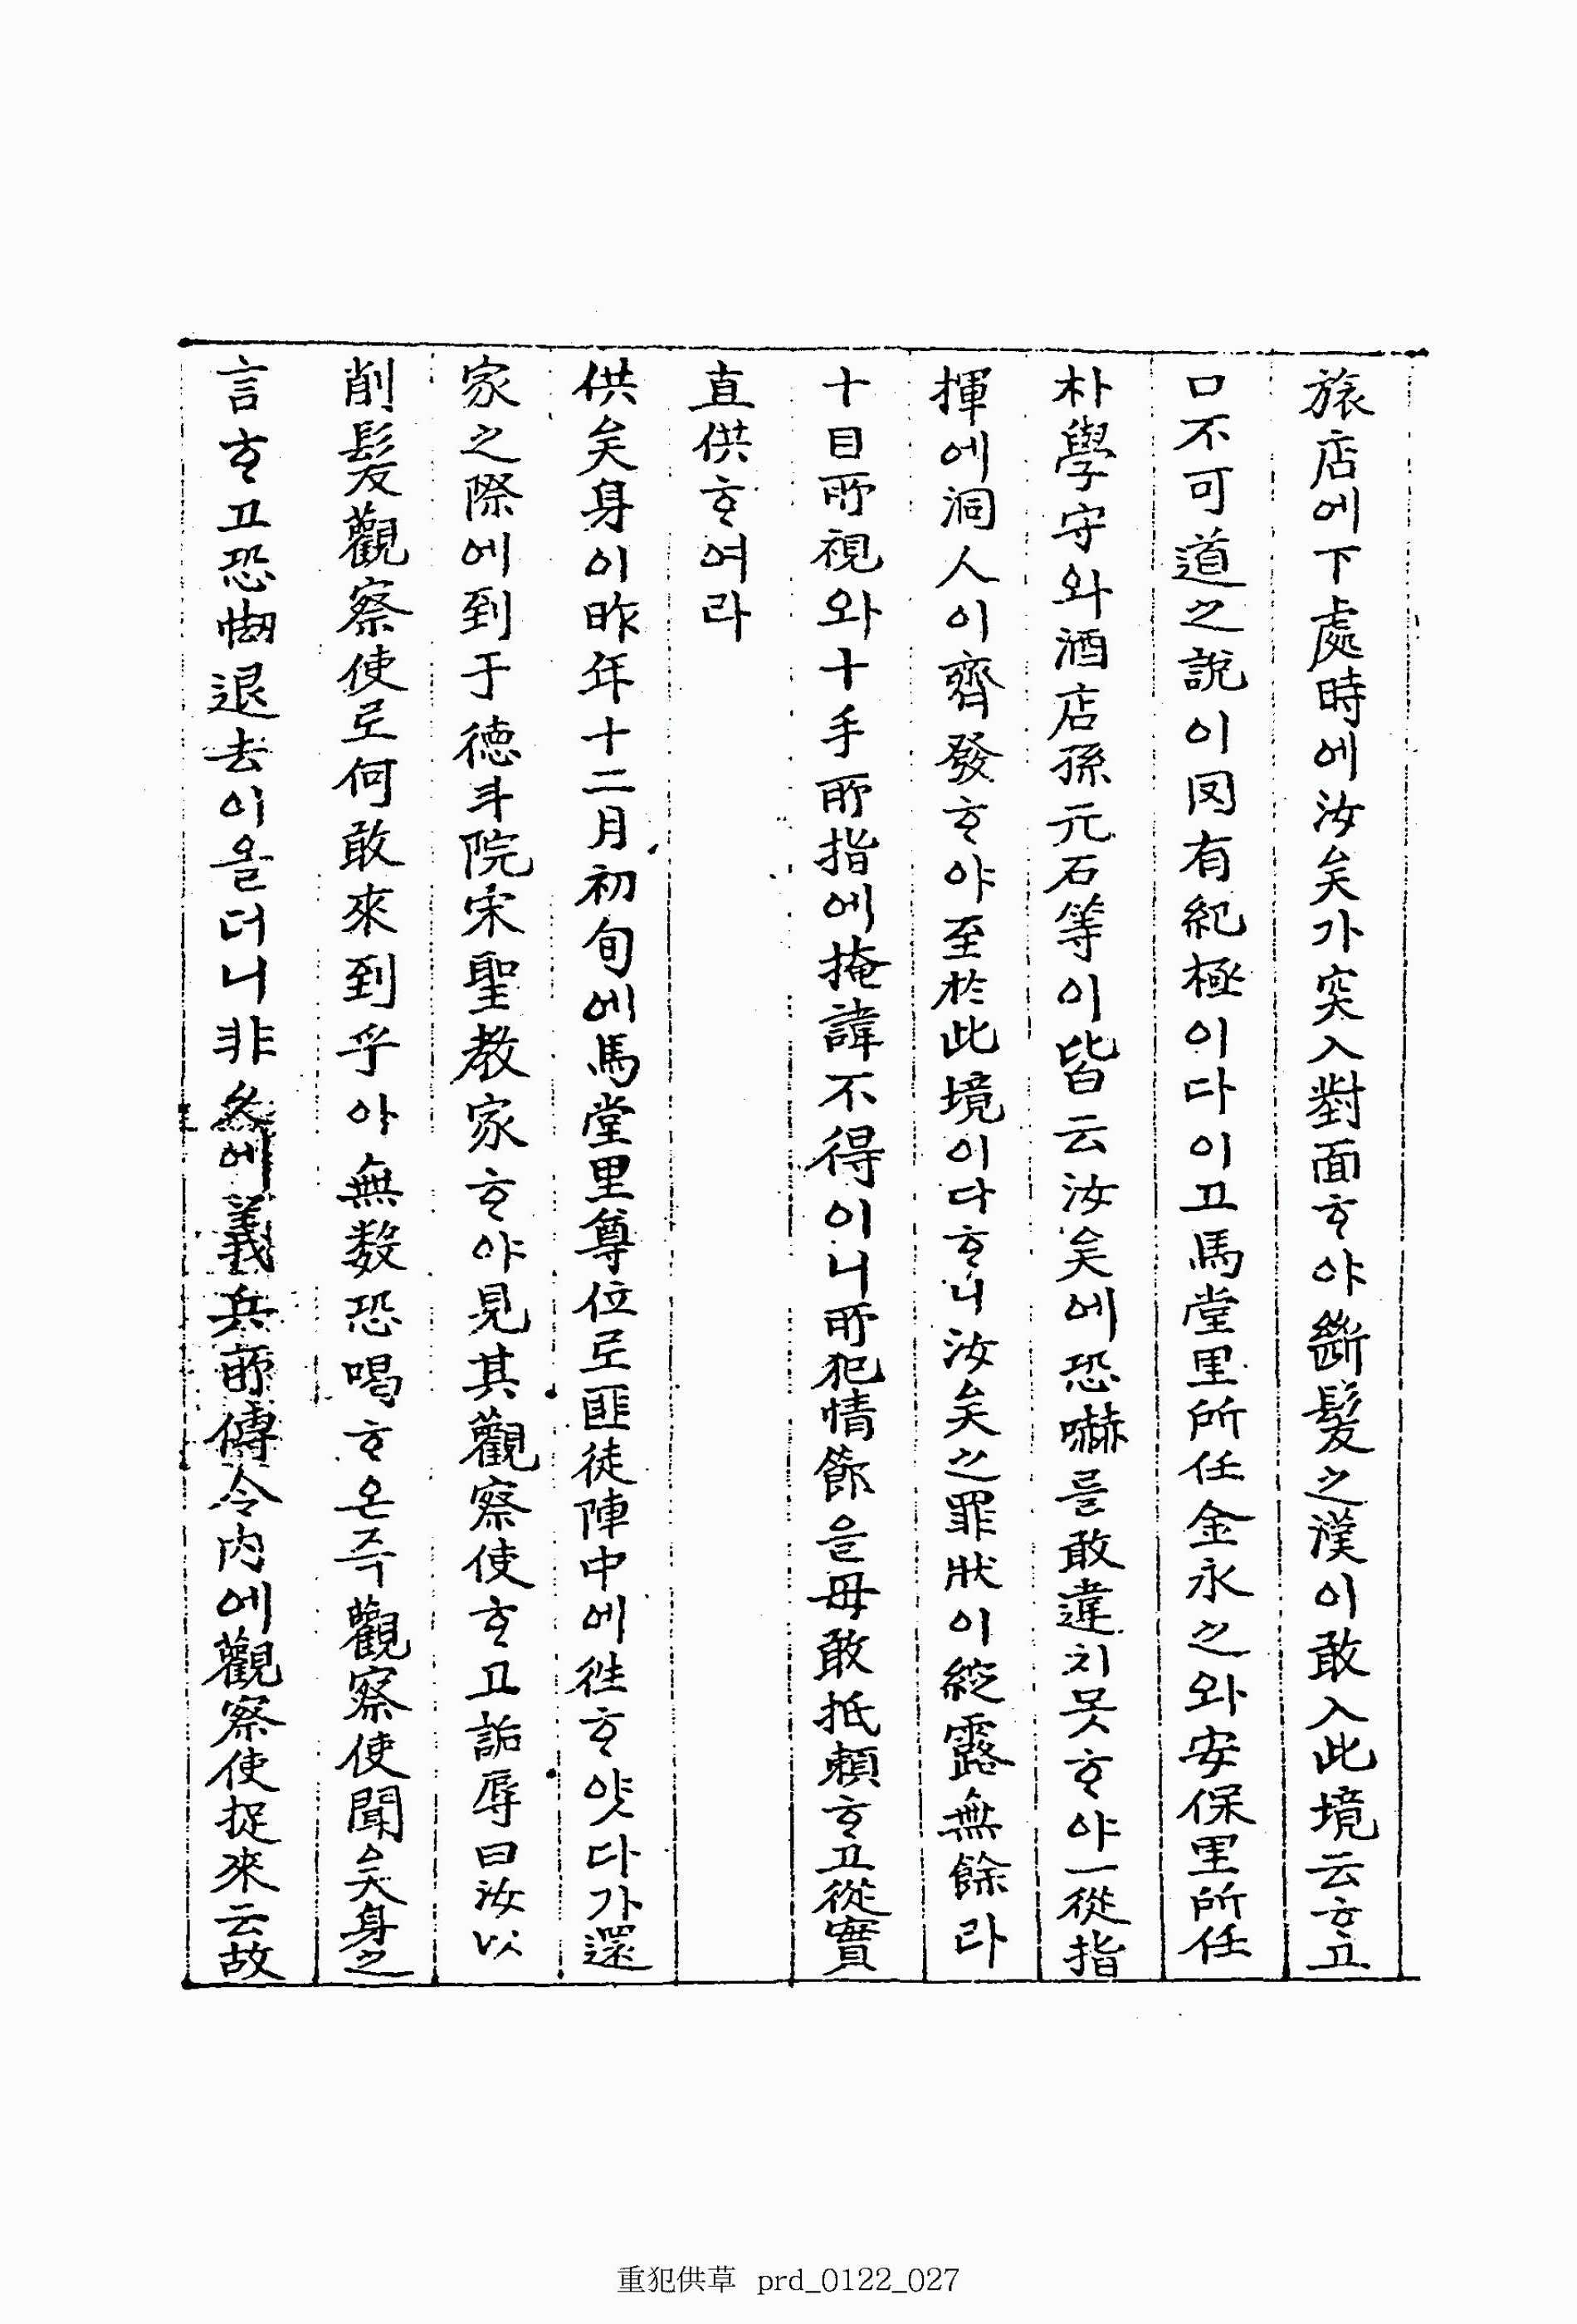 旅店에下處時에汝矣가突入對面ᄒᆞ야斷髮之漢이敢入此境云ᄒᆞ고
口不可道之說이罔有紀極이다이고馬堂里所任金永之와安保里所任
朴學守와酒店孫元石等이皆云汝矣에恐嚇를敢違치못ᄒᆞ야一從指
揮에洞人이齊發ᄒᆞ야至於此境이다ᄒᆞ니汝矣之罪狀이綻露無餘라
十目所視와十手所指에掩諱不得이니所犯情節을毋敢抵賴ᄒᆞ고從實
直供ᄒᆞ여라
供矣身이昨年十二月初旬에馬堂里尊位로匪徒陣中에徃ᄒᆞ얏다가還
家之際에到于德斗院宋聖教家ᄒᆞ야見其觀察使ᄒᆞ고詬辱曰汝以
削髮觀察使로何敢來到乎아無数恐喝ᄒᆞ온즉觀察使聞矣身之
言ᄒᆞ고恐㥘退去이올더니非久에義兵所傳令內에觀察使捉來云故
重犯供草 prd_0122_027